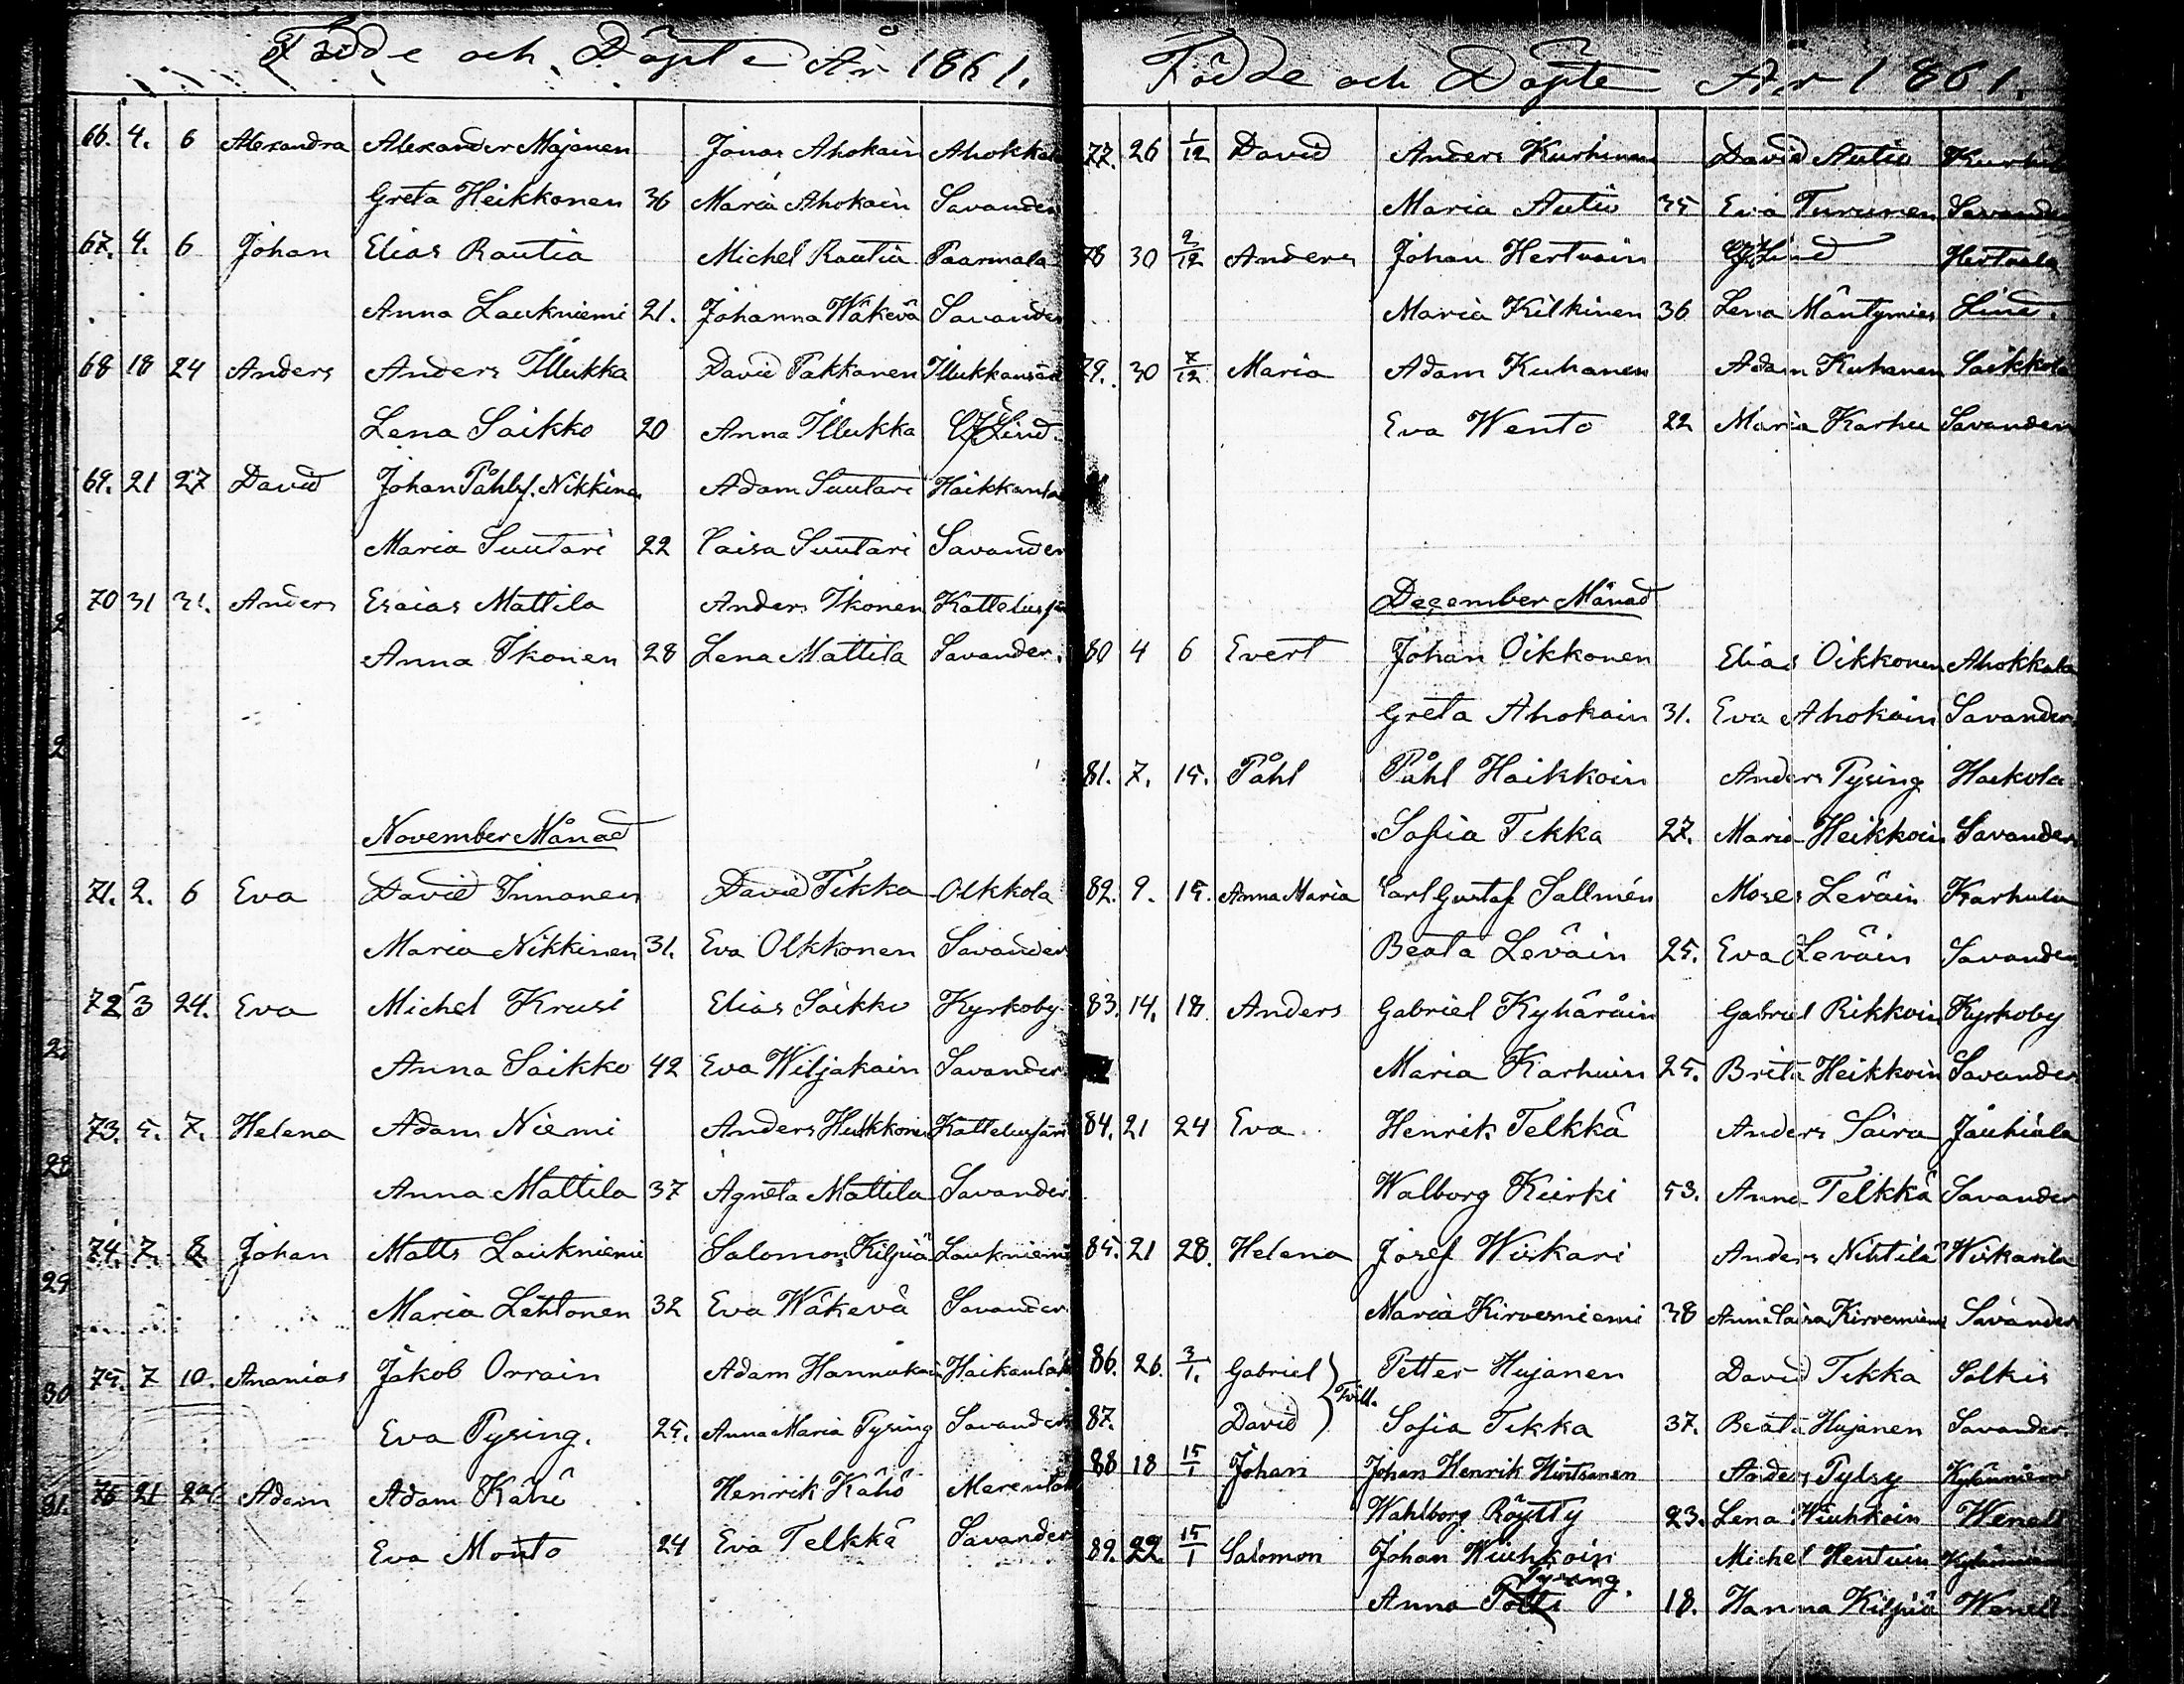 Födde och Döpte År 1861.
66. 4. 6 Alexandra Alexander Majanen Jonas Ahokain Ahokkala
Greta Heikkonen 36 Maria Ahokain Savander
67. 4. 6 Johan Elias Rautia Michel Rautia Paarmala
Anna Laukniemi 21. Johanna Wäkevä Savander
68 18 24 Anders Anders Illukka David Pakkanen
Lena Saikko 20 Anna Illukka Lind.
69. 21 27 David Johan Påhlsf. Nikkinen Adam Suutari Haikkanla
Maria Suutari 22 Caisa Suutari Savander
70 31 31. Anders Esaias Mattila Anders Ikonen
Anna Ikonen 28 Lena Mattila Savander.
November Månad
71. 2. 6 Eva David Innanen David Tikka Olkkola
Maria Nikkinen 31. Eva Olkkonen Savander
72 3 24. Eva Michel Krusi Elias Saikko Kyrkoby
Anna Saikko 42 Eva Wiljakain Savander
73. 5. 7. Helena Adam Niemi Anders
Anna Mattila 37 Agneta Mattila Savander
74. 7. 8 Johan Matts Laukniemi Salomon Kilpiä Laukniemi
Maria Lehtonen 32 Eva Wäkevä Savander
75. 7 10. Ananias Jakob Orrain Adam Hannukain
Eva Pysing. 25. Anna Maria Pysing Savander
76 21 24 Adam Adam Kähö Henrik Kähö
Eva Monto 24 Eva Telkkä Savander
Födde och Döpte År 1861.
77. 26 1/12 David Anders Kurhinen David Autio
Maria Autio 35 Eva Turunen Savander
78 30 2/12 Anders Johan Hertuain Lind Hertuala
Maria Kilkinen 36 Lena Mäntymies Lind.
79. 30 7/12 Maria Adam Kuhanen Adam Kuhanen Saikkola
Eva Wento 22 Maria Karhu Savander
December Månad
80 4 6 Evert Johan Oikkonen Elias Oikkonen Ahokkala
Greta Ahokain 31. Eva Ahokain Savander
81. 7. 15. Påhl Påhl Haikkoin Anders Pysing Haikola
Sofia Tikka 27. Maria Heikkoin Savander
82. 9. 15. Anna Maria Carl Gustaf Sallmén Moses Leväin Karhula
Beata Leväin 25. Eva Leväin Savander
83. 14. 18. Anders Gabriel Kyhäräin Gabriel Rikkoin Kyrkoby
Maria Karhuin 25. Brita Heikkoin Savander
84. 21 24 Eva Henrik Telkkä Anders Saira Jauhiala
Walborg Kiirki 53. Anna Telkkä Savander
85. 21 28. Helena Josef Wiskari Anders Nihtilä Wiskarila
Maria Kirvesniemi 38 Anna Caisa Kirvesniemi Savander
86. 26. 3/1. Gabriel } Tvill. Petter Hujanen David Tikka Sälkis
87. David Sofia Tikka 37. Beata Hujanen Savander
88 18 15/1 Johan Johan Henrik Hintsanen Anders Pylsy Kylänniemi
Wahlborg Röytty 23. Lena Wiuhkoin Wenell
89. 22. 15/1 Salomon Johan Wiuhkoin Michel Hentuin Kylänniemi
Pysing.
Anna Potti 18. Hanna Kilpiä Wenell